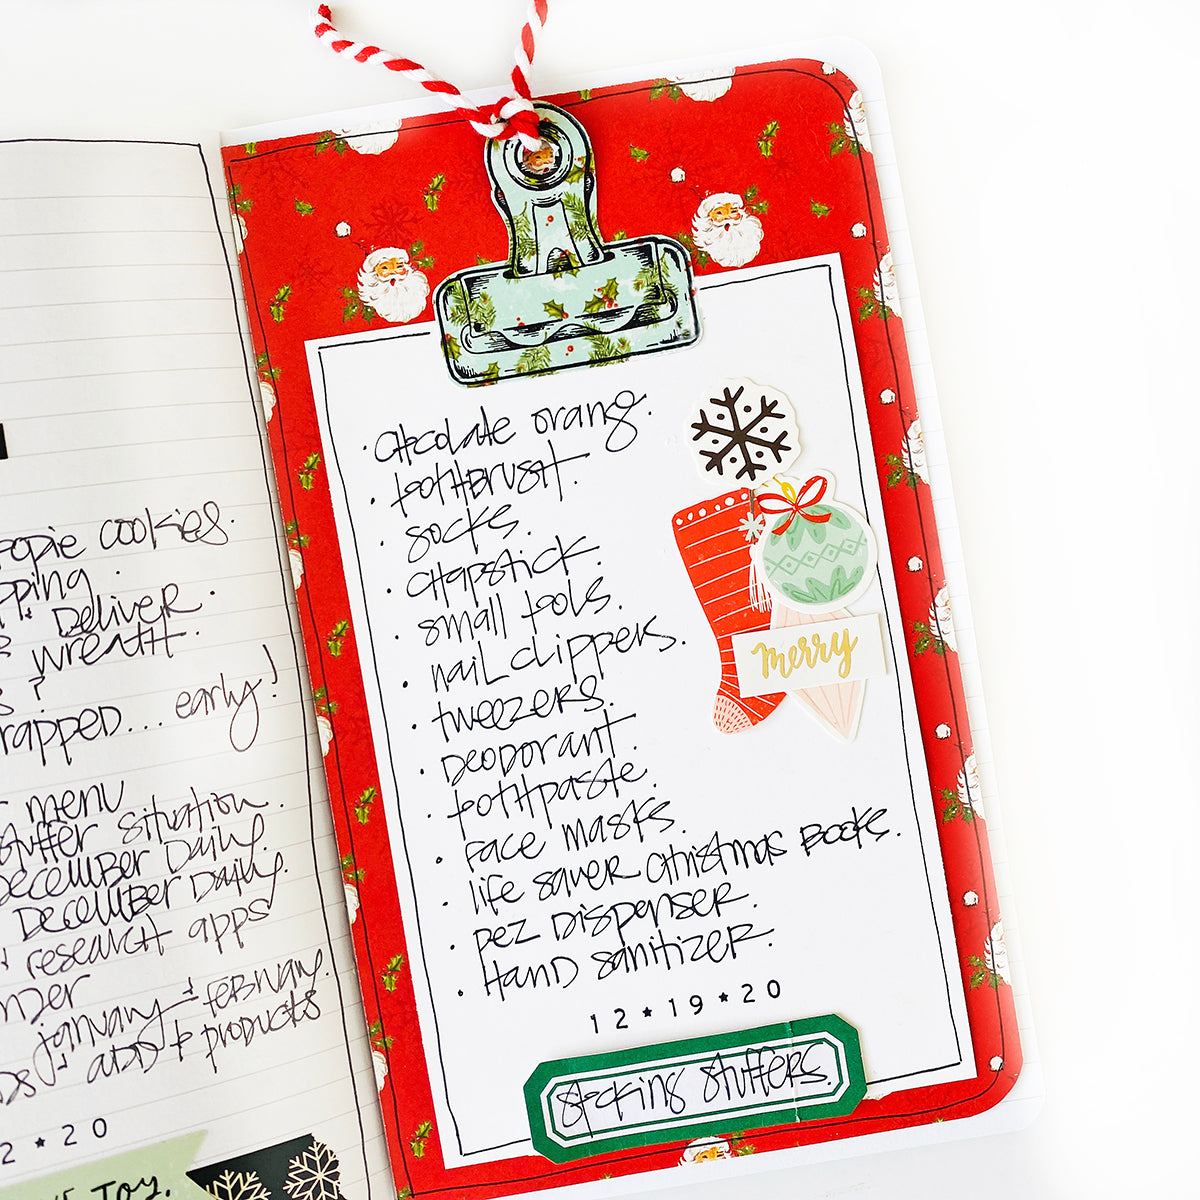 opie cookies.
pping.
Deliver.
wreath.
s?
rapped... early!
menu
stuffer situation.
December Daily.
December Daily.
research apps
nder
january + february.
add + products
2 ★ 20
Joy.
· chocolate orang.
· toothbrush.
· socks.
· chapstick.
· small tools.
· nail clippers.
· tweezers.
· Deodorant.
· toothpaste.
· face masks.
· life saver christmas books.
· pez Dispenser.
· Hand sanitizer.
merry
12★19★20
stocking stuffers.